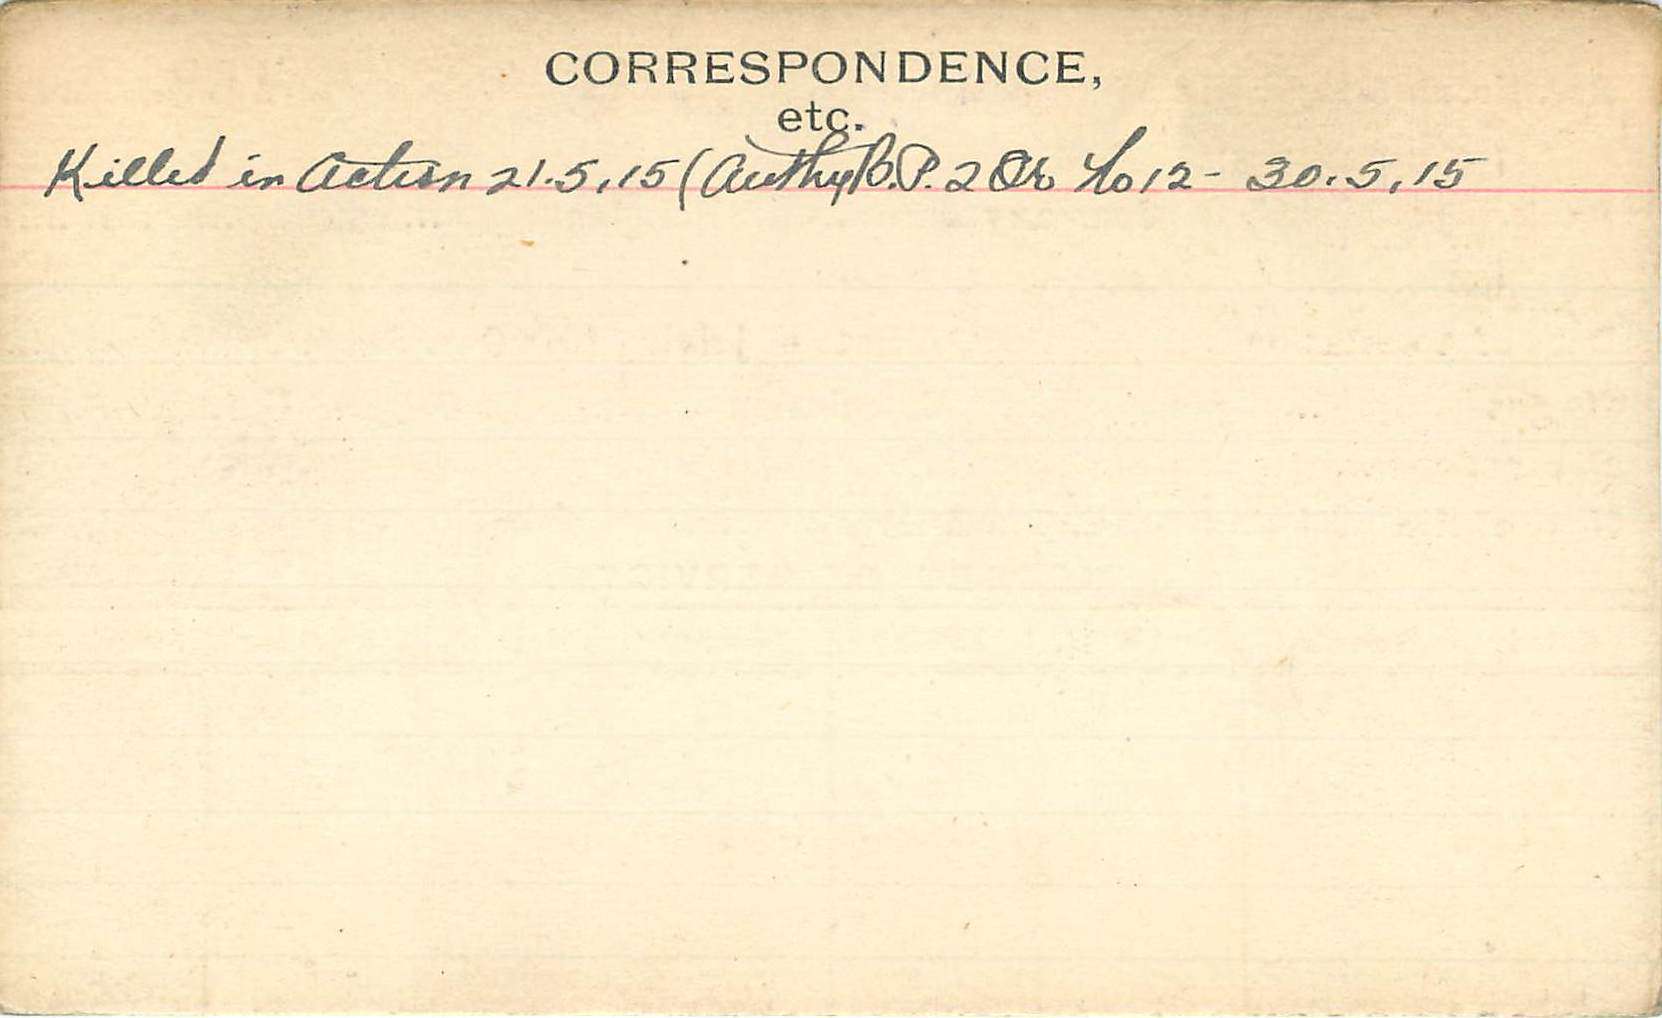 CORRESPONDENCE,
etc.
Killed in Action 21.5.15 (Authy B.P. 2 Or No 12 - 30.5.15